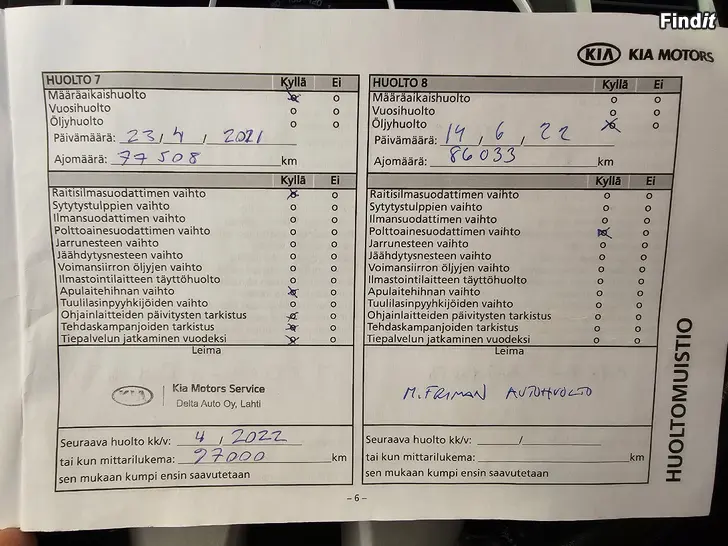 Findit
KIA KIA MOTORS
HUOLTO 7 Kyllä Ei
Määräaikaishuolto
Vuosihuolto
Öljyhuolto
Päivämäärä: 23 / 4 / 2021
Ajomäärä: 77 508 km
Kyllä Ei
Raitisilmasuodattimen vaihto
Sytytystulppien vaihto
Ilmansuodattimen vaihto
Polttoainesuodattimen vaihto
Jarrunesteen vaihto
Jäähdytysnesteen vaihto
Voimansiirron öljyjen vaihto
Ilmastointilaitteen täyttöhuolto
Apulaitehihnan vaihto
Tuulilasinpyyhkijöiden vaihto
Ohjainlaitteiden päivitysten tarkistus
Tehdaskampanjoiden tarkistus
Tiepalvelun jatkaminen vuodeksi
Leima
KIA Kia Motors Service
Delta Auto Oy, Lahti
Seuraava huolto kk/v: 4 / 2022
tai kun mittarilukema: 97000 km
sen mukaan kumpi ensin saavutetaan
HUOLTO 8 Kyllä Ei
Määräaikaishuolto
Vuosihuolto
Öljyhuolto
Päivämäärä: 14 / 6 / 22
Ajomäärä: 86033 km
Kyllä Ei
Raitisilmasuodattimen vaihto
Sytytystulppien vaihto
Ilmansuodattimen vaihto
Polttoainesuodattimen vaihto
Jarrunesteen vaihto
Jäähdytysnesteen vaihto
Voimansiirron öljyjen vaihto
Ilmastointilaitteen täyttöhuolto
Apulaitehihnan vaihto
Tuulilasinpyyhkijöiden vaihto
Ohjainlaitteiden päivitysten tarkistus
Tehdaskampanjoiden tarkistus
Tiepalvelun jatkaminen vuodeksi
Leima
M. FRIMAN AUTOHUOLTO
Seuraava huolto kk/v: /
tai kun mittarilukema: km
sen mukaan kumpi ensin saavutetaan
HUOLTOMUISTIO
– 6 –